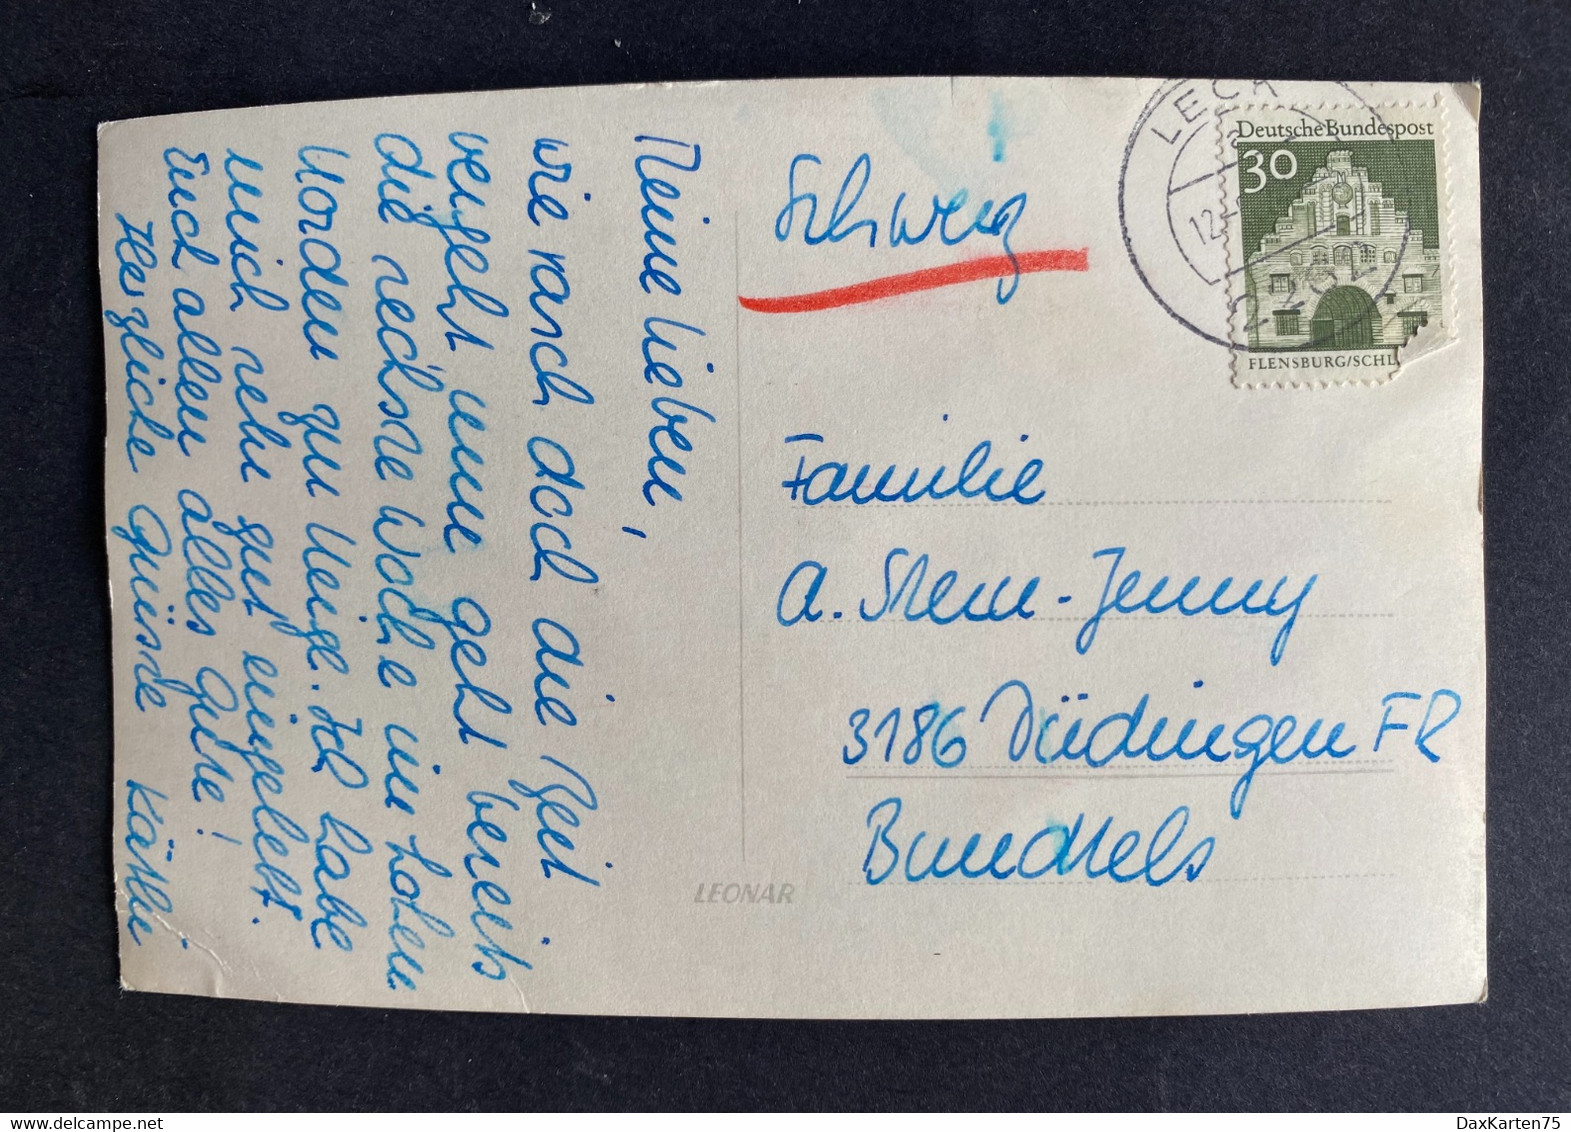 Meine Lieben,
wie rasch doch die Zeit
vergeht und geht bereits
die nächste Woche im hohen
Norden zur Neige. Ich habe
mich sehr gut eingelebt.
Euch allen alles Gute!
Herzliche Grüsse Käthi
Schweiz
LECK
12.
2262
Deutsche Bundespost
30
FLENSBURG/SCHL
Familie
A. Stern-Jenny
3186 Düdingen FR
LEONAR
DaxKarten75